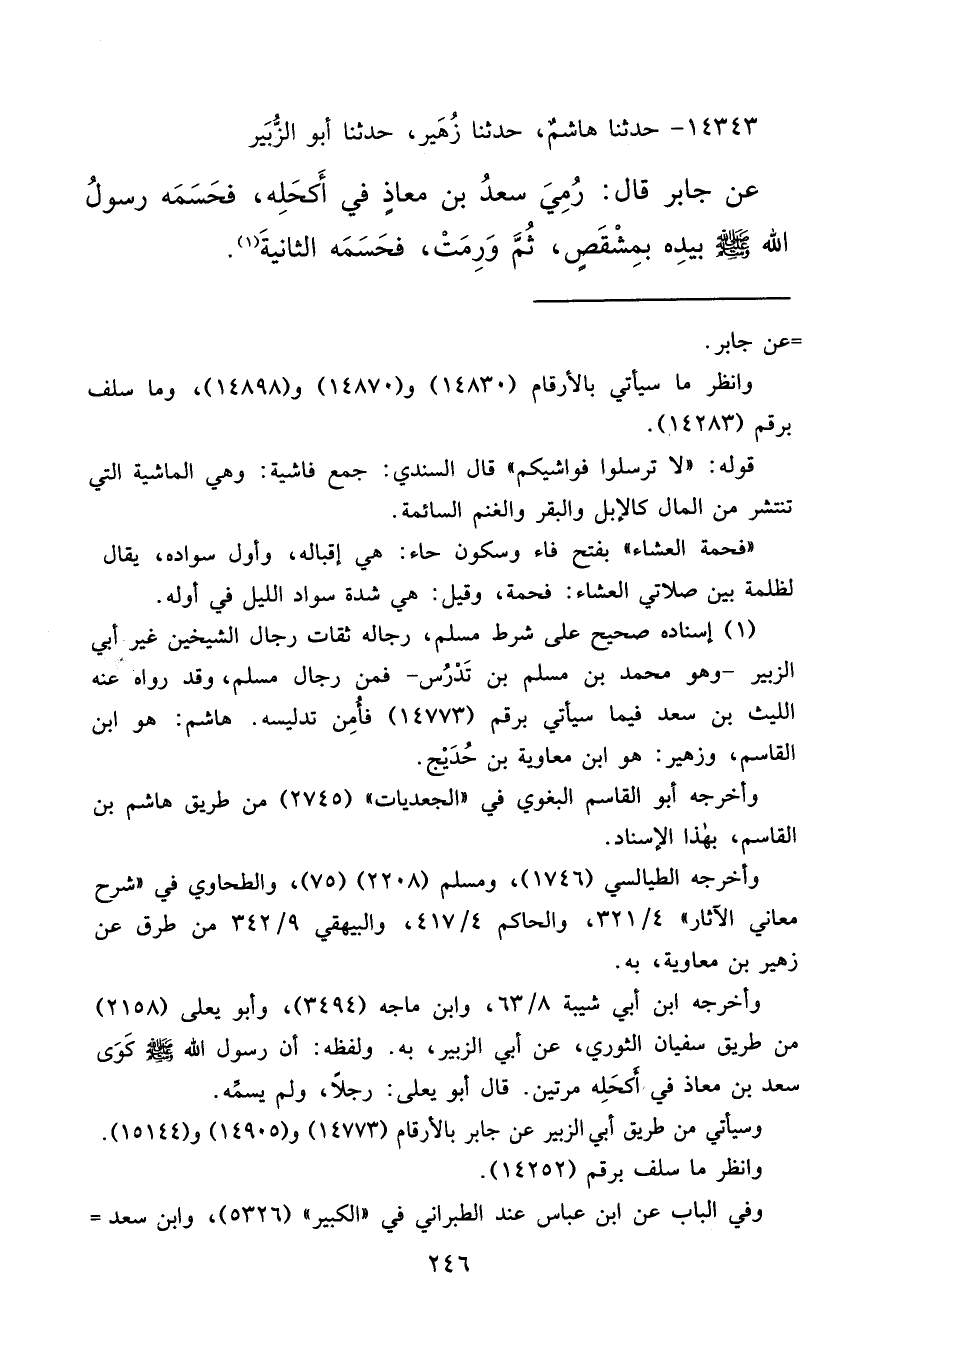 ١٤٣٤٣- حدثنا هاشمٌ، حدثنا زُهَير، حدثنا أبو الزُّبَير
عن جابر قال: رُمِيَ سعدُ بن معاذٍ في أَكحَلِه، فحَسَمَه رسولُ
الله ﷺ بيدِه بمِشْقَصٍ، ثُمَّ وَرِمَتْ، فحَسَمَه الثانيةَ(١).
=عن جابر.
وانظر ما سيأتي بالأرقام (١٤٨٣٠) و(١٤٨٧٠) و(١٤٨٩٨)، وما سلف
برقم (١٤٢٨٣).
قوله: «لا ترسلوا فواشيكم» قال السندي: جمع فاشية: وهي الماشية التي
تنتشر من المال كالإبل والبقر والغنم السائمة.
«فحمة العشاء» بفتح فاء وسكون حاء: هي إقباله، وأول سواده، يقال
لظلمة بين صلاتي العشاء: فحمة، وقيل: هي شدة سواد الليل في أوله.
(١) إسناده صحيح على شرط مسلم، رجاله ثقات رجال الشيخين غير أبي
الزبير -وهو محمد بن مسلم بن تَدْرُس- فمن رجال مسلم، وقد رواه عنه
الليث بن سعد فيما سيأتي برقم (١٤٧٧٣) فأُمِن تدليسه. هاشم: هو ابن
القاسم، وزهير: هو ابن معاوية بن حُدَيْج.
وأخرجه أبو القاسم البغوي في «الجعديات» (٢٧٤٥) من طريق هاشم بن
القاسم، بهٰذا الإسناد.
وأخرجه الطيالسي (١٧٤٦)، ومسلم (٢٢٠٨) (٧٥)، والطحاوي في «شرح
معاني الآثار» ٣٢١/٤، والحاكم ٤١٧/٤، والبيهقي ٣٤٢/٩ من طرق عن
زهير بن معاوية، به.
وأخرجه ابن أبي شيبة ٦٣/٨، وابن ماجه (٣٤٩٤)، وأبو يعلى (٢١٥٨)
من طريق سفيان الثوري، عن أبي الزبير، به. ولفظه: أن رسول الله ﷺ كَوَى
سعد بن معاذ في أَكحَلِه مرتين. قال أبو يعلى: رجلاً، ولم يسمِّه.
وسيأتي من طريق أبي الزبير عن جابر بالأرقام (١٤٧٧٣) و(١٤٩٠٥) و(١٥١٤٤).
وانظر ما سلف برقم (١٤٢٥٢).
وفي الباب عن ابن عباس عند الطبراني في «الكبير» (٥٣٢٦)، وابن سعد =
٢٤٦